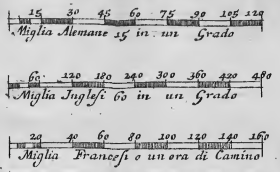 15 30 45 60 75 90 105 120
Miglia Alemane 15 in un Grado
60 120 180 240 300 360 420 480
Miglia Inglesi 60 in un Grado
20 40 60 80 100 120 140 160
Miglia Francesi o un ora di Camino